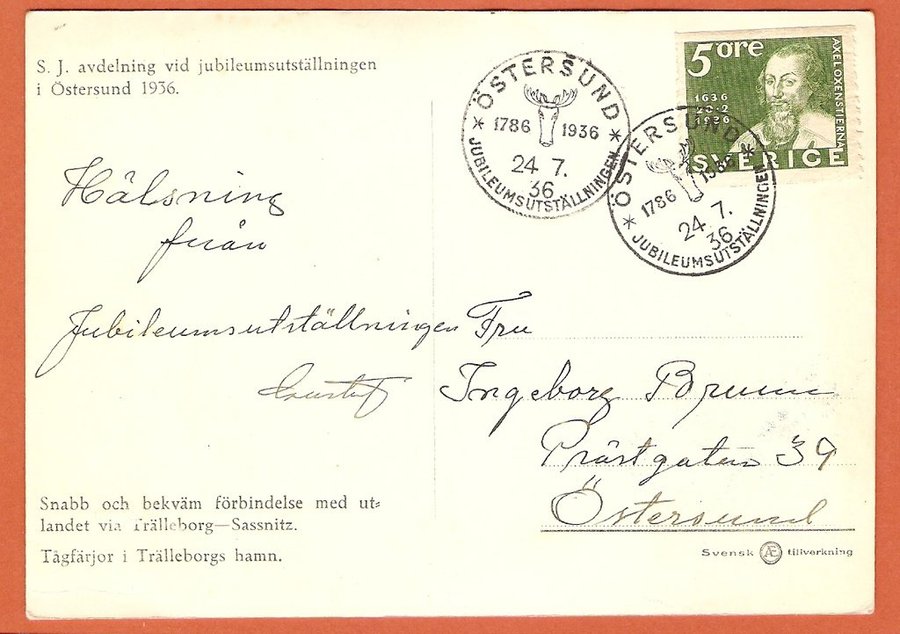 S. J. avdelning vid jubileumsutställningen
i Östersund 1936.
ÖSTERSUND
1786 1936
24 7.
36
* JUBILEUMSUTSTÄLLNINGEN *
5 öre
AXEL OXENSTIERNA
1636
20·2
1936
SVERIGE
ÖSTERSUND
1786 1936
24 7.
36
* JUBILEUMSUTSTÄLLNINGEN *
Hälsning
från
Jubileumsutställningen
Gustaf
Fru
Ingeborg Brunn
Prästgatan 39
Östersund
Snabb och bekväm förbindelse med ut-
landet via Trälleborg—Sassnitz.
Tågfärjor i Trälleborgs hamn.
Svensk Æ tillverkning